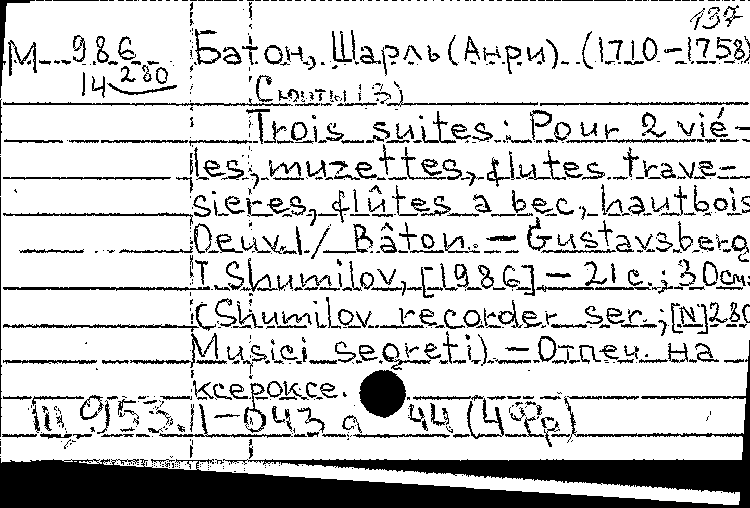 137
М 986 Батон, Шарль (Анри). (1710-1758)
14 280 Сюиты (3)
Trois suites: Pour 2 vié-
les, muzettes, flutes trave-
sieres, flûtes a bec, hautbois
Oeuv.1/ Bâton. - Gustavsberg
T. Shumilov, [1986] - 21 с.; 30см.
(Shumilov recorder ser.; [N]280
Musici segreti) - Отпеч. на
ксероксе.
953.1-043 44 (4Фр)